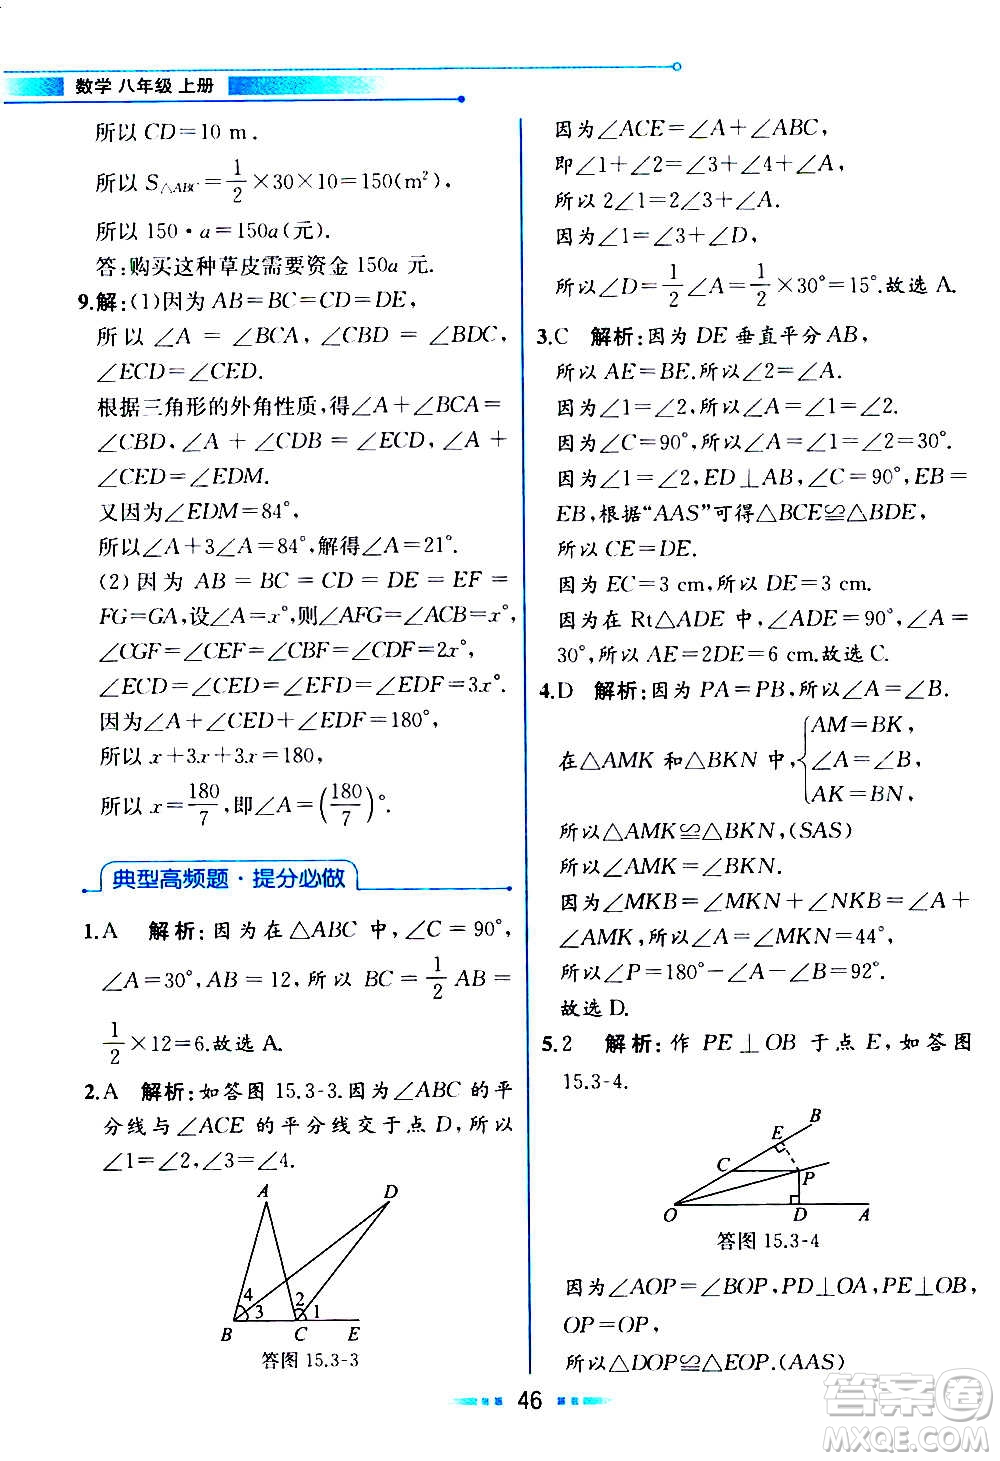 数学 八年级 上册
所以 CD=10 m.
所以 S△ABC=1/2×30×10=150(m²),
所以 150·a=150a(元).
答:购买这种草皮需要资金 150a 元.
9.解:(1)因为 AB=BC=CD=DE,
所以 ∠A = ∠BCA, ∠CBD = ∠BDC,
∠ECD=∠CED.
根据三角形的外角性质,得∠A+∠BCA=
∠CBD, ∠A + ∠CDB = ∠ECD, ∠A +
∠CED=∠EDM.
又因为∠EDM=84°,
所以∠A+3∠A=84°,解得∠A=21°.
(2) 因为 AB = BC = CD = DE = EF =
FG=GA,设∠A=x°,则∠AFG=∠ACB=x°,
∠CGF=∠CEF=∠CBF=∠CFB=2x°,
∠ECD=∠CED=∠EFD=∠EDF=3x°.
因为∠A+∠CED+∠EDF=180°,
所以 x+3x+3x=180,
所以 x=180/7,即∠A=(180/7)°.
典型高频题·提分必做
1.A 解析:因为在△ABC 中,∠C=90°,
∠A=30°,AB=12,所以 BC=1/2 AB=
1/2×12=6.故选 A.
2.A 解析:如答图 15.3-3.因为∠ABC 的平
分线与∠ACE 的平分线交于点 D,所以
∠1=∠2,∠3=∠4.
A
D
4
3
2
1
B
C
E
答图 15.3-3
因为∠ACE=∠A+∠ABC,
即∠1+∠2=∠3+∠4+∠A,
所以 2∠1=2∠3+∠A.
因为∠1=∠3+∠D,
所以∠D=1/2∠A=1/2×30°=15°.故选 A.
3.C 解析:因为 DE 垂直平分 AB,
所以 AE=BE.所以∠2=∠A.
因为∠1=∠2,所以∠A=∠1=∠2.
因为∠C=90°,所以∠A=∠1=∠2=30°.
因为∠1=∠2,ED⊥AB,∠C=90°,EB=
EB,根据“AAS”可得△BCE≌△BDE,
所以 CE=DE.
因为 EC=3 cm,所以 DE=3 cm.
因为在 Rt△ADE 中,∠ADE=90°,∠A=
30°,所以 AE=2DE=6 cm.故选 C.
4.D 解析:因为 PA=PB,所以∠A=∠B.
在△AMK 和△BKN 中,{AM=BK,
∠A=∠B,
AK=BN,
所以△AMK≌△BKN,(SAS)
所以∠AMK=∠BKN.
因为∠MKB=∠MKN+∠BKN=∠A+
∠AMK,所以∠A=∠MKN=44°,
所以∠P=180°-∠A-∠B=92°.
故选 D.
5.2 解析:作 PE⊥OB 于点 E,如答图
15.3-4.
B
E
C
P
O
D
A
答图 15.3-4
因为∠AOP=∠BOP,PD⊥OA,PE⊥OB,
OP=OP,
所以△DOP≌△EOP.(AAS)
46
答案圈
MXQE.COM